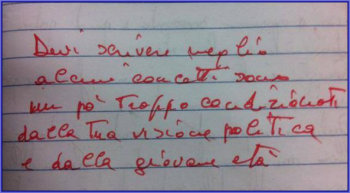 Devi scrivere meglio
alcuni concetti sono
un pò troppo condizionati
dalla tua visione politica
e dalla giovane età